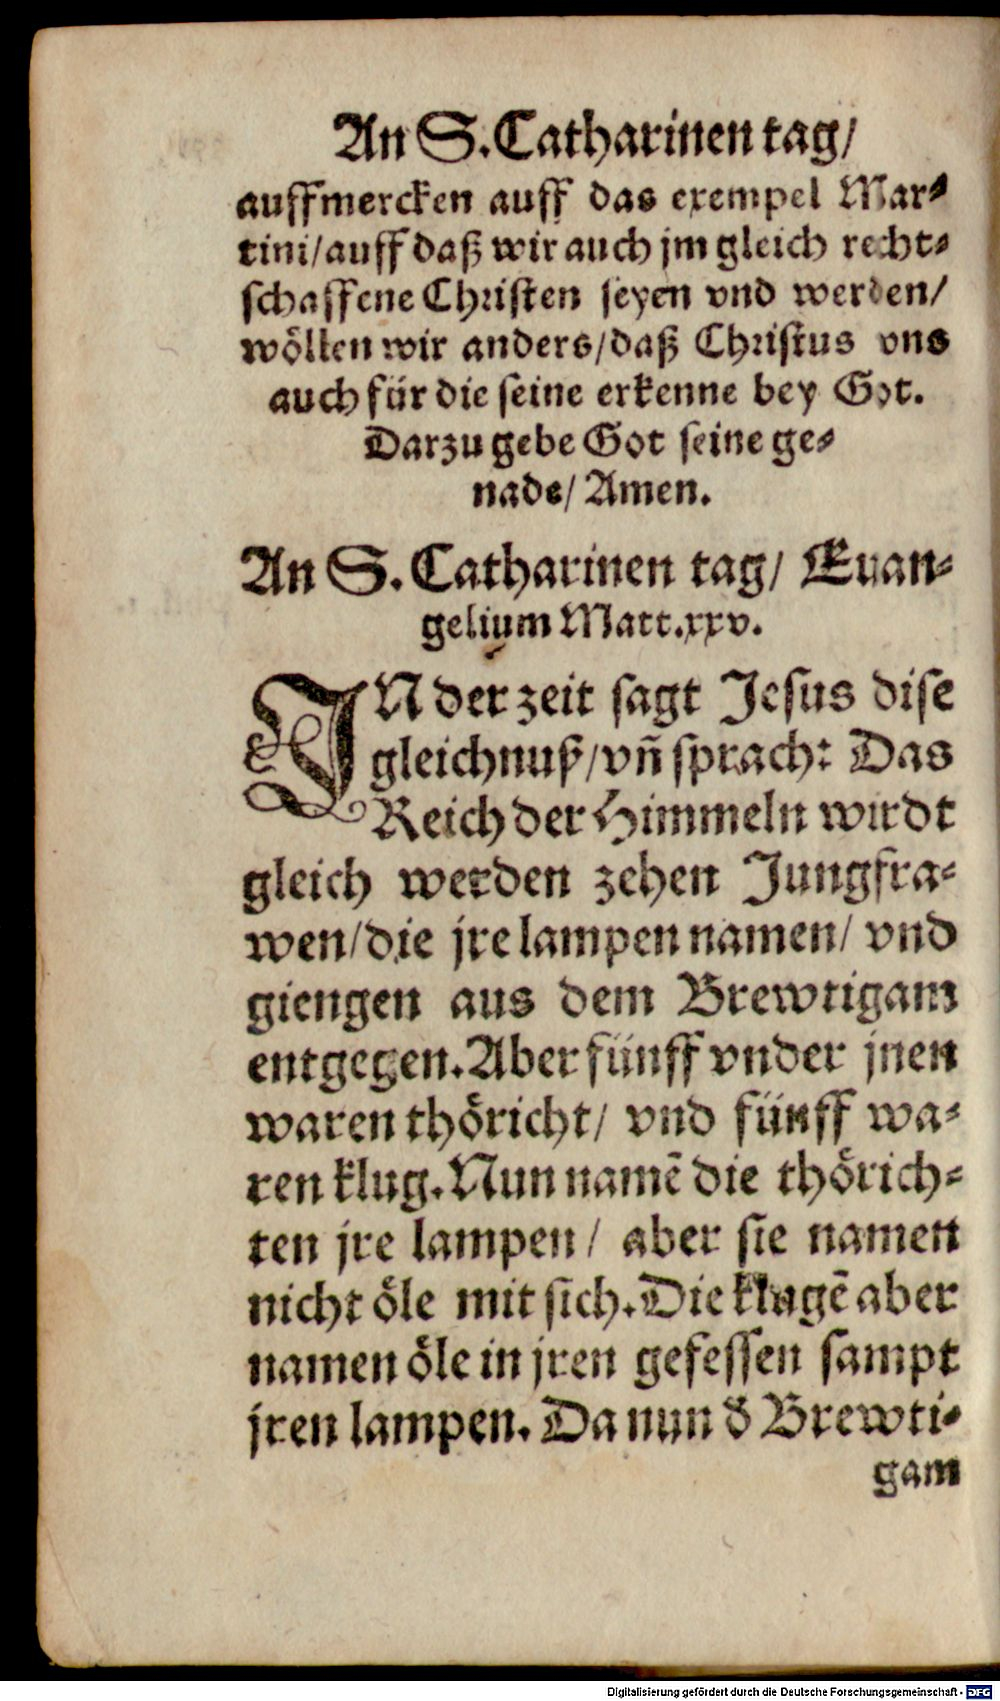 An S. Catharinen tag/
auffmercken auff das exempel Mar⸗
tini/auff daß wir auch jm gleich recht⸗
schaffene Christen seyen vnd werden/
wöllen wir anders/daß Christus vns
auch für die seine erkenne bey Got.
Darzu gebe Got seine ge⸗
nade/ Amen.
An S. Catharinen tag/ Euan⸗
gelium Matt.xxv.
IN der zeit sagt Jesus dise
gleichnuß/vñ sprach: Das
Reich der Himmeln wirdt
gleich werden zehen Jungfra⸗
wen/die jre lampen namen/ vnd
giengen aus dem Brewtigam
entgegen. Aber fünff vnder jnen
waren thöricht/ vnd fünff wa⸗
ren klug. Nun namē die thörich⸗
ten jre lampen/ aber sie namen
nicht öle mit sich. Die klugē aber
namen öle in jren gefessen sampt
jren lampen. Da nun d̕ Brewti⸗
gam
Digitalisierung gefördert durch die Deutsche Forschungsgemeinschaft - DFG